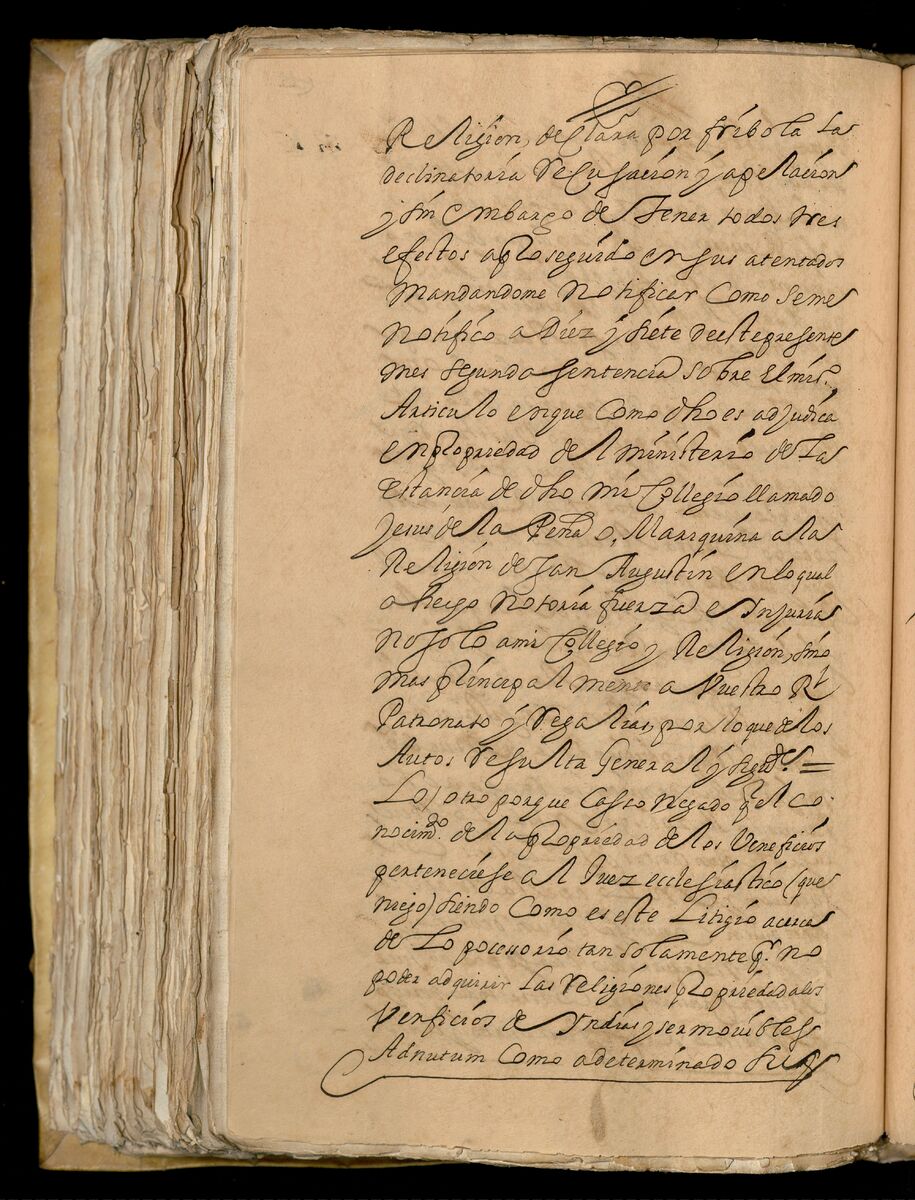 Religión, declara por fribola la
declinatoria Recusación y apelación
y sin embargo de tener todos tres
efectos a proseguido en sus atentados
Mandandome Notificar Como seme
Notifico a Diez y siete deeste presente
mes segunda sentencia sobre el mis.º
Articulo enque Como dho es adjudica
en propriedad del ministerio de La
estancia de dho mi Collegio llamado
Jesus de la Peña o, Mariquina a la
Religion de san Augustin en lo qual
a hecho notoria fuerza e Injuria
no solo ami Collegio y Religion, sino
mas principalmente a Vuestro Rl
Patronato y Regalias, por lo que de los
Autos Resulta General y sigte. =
Lo otro porque Casso negado q el co
nocimto. de la propriedad de los Veneficios
perteneciese al Juez ecclesiastico (que
niego) siendo Como es este Litigio acerca
de Lo pocessorio tan solamente pr. no
poder adquirir Las Religiones propriedad alos
Venficios de Yndias y ser movibles
Adnutum Como a determinado su